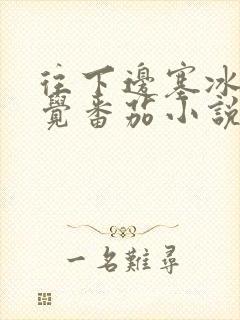 往下邊塞冰
覺番茄小說
一名難尋